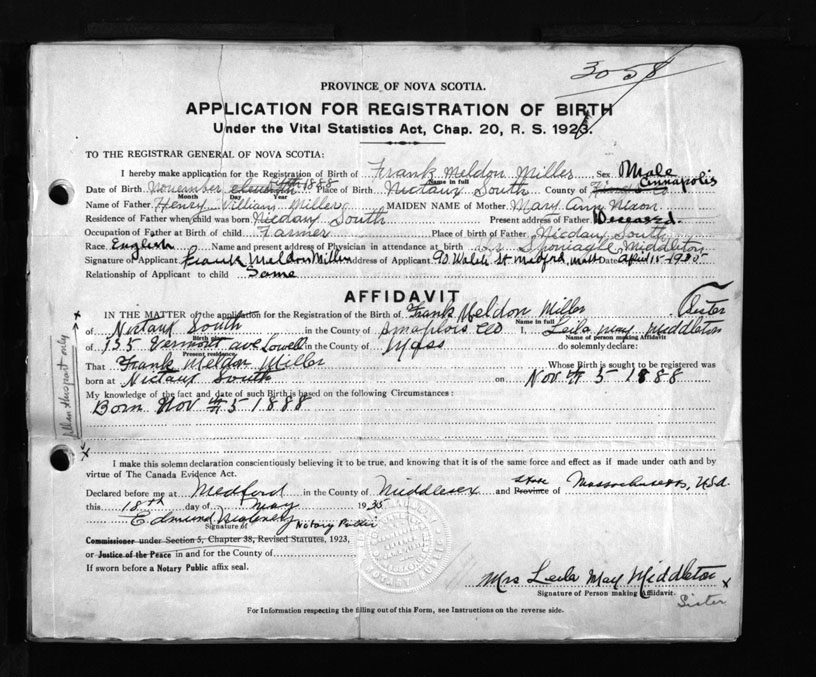 3058
PROVINCE OF NOVA SCOTIA.
APPLICATION FOR REGISTRATION OF BIRTH
Under the Vital Statistics Act, Chap. 20, R. S. 1923.
TO THE REGISTRAR GENERAL OF NOVA SCOTIA:
I hereby make application for the Registration of Birth of Frank Meldon Miller Sex Male
Name in full
Date of Birth November eleventh 5th 1888 Place of Birth Nictaux South County of Annapolis
Month Day Year
Name of Father Henry William Miller MAIDEN NAME of Mother Mary Ann Nixon
Residence of Father when child was born Nicdaux South Present address of Father Deceased.
Occupation of Father at Birth of child Farmer Place of birth of Father Nicdaux South
Race English Name and present address of Physician in attendance at birth Dr Sponiagle Middleton
Signature of Applicant Frank Meldon Miller Address of Applicant 90 St Medford, Mass Date April 15-1935
Relationship of Applicant to child Same
AFFIDAVIT
IN THE MATTER of the application for the Registration of Birth of Frank Meldon Miller Sister
Name in full
of Nictaux South in the County of I, Leila May Middleton
Birth place Name of person making Affidavit
of 135 Vermont ave Lowell in the County of Mass do solemnly declare:
Present residence
That Frank Meldon Miller Whose Birth is sought to be registered was
born at Nictaux South on Nov 5 1888
My knowledge of the fact and date of such Birth is based on the following Circumstances:
Born Nov 5 1888
I make this solemn declaration conscientiously believing it to be true, and knowing that it is of the same force and effect as if made under oath and by
virtue of The Canada Evidence Act.
Declared before me at Medford in the County of Middlesex and Province State of Massachusetts, USA
this 18th day of May 1935
Edmund Notary Public
Signature of
Commissioner under Section 5, Chapter 38, Revised Statutes, 1923,
or Justice of the Peace in and for the County of
If sworn before a Notary Public affix seal.
Mrs Leila May Middleton x
Signature of Person making Affidavit.
Sister
For Information respecting the filling out of this Form, see Instructions on the reverse side.